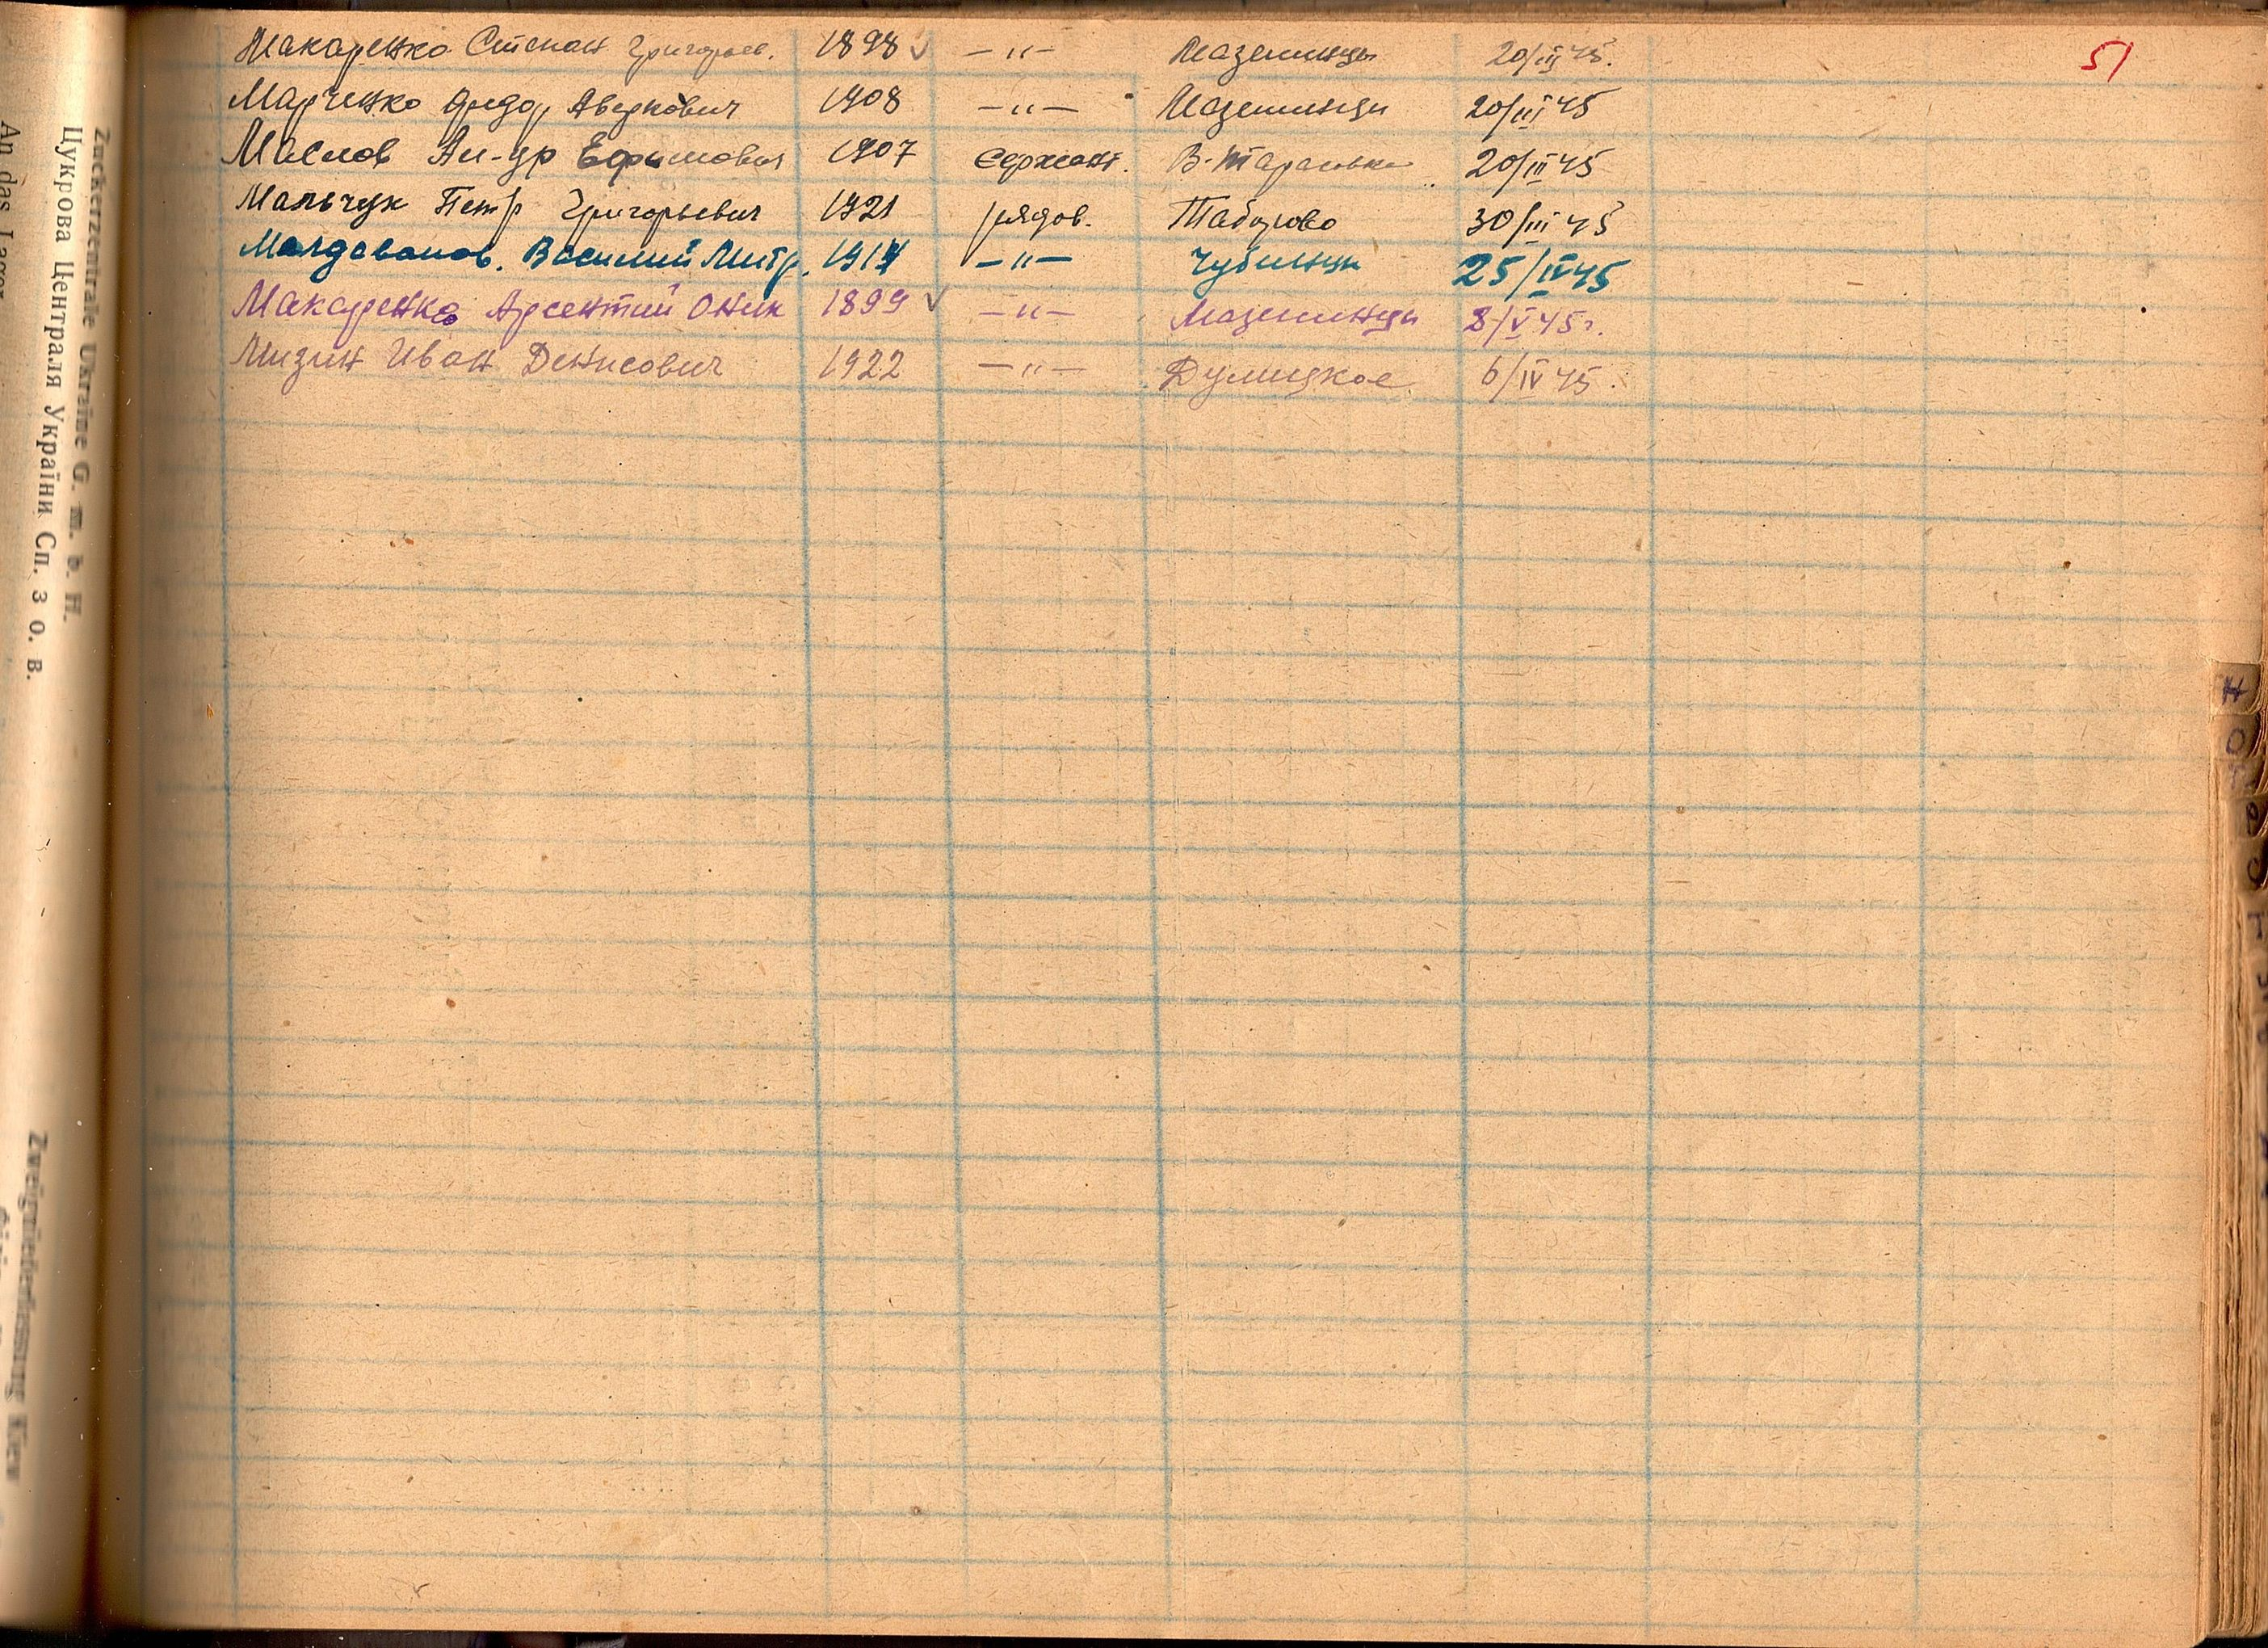 51
Макаренко Степан Григорьев. 1898 ✓ —"— Мазепинцы 20/III 45.
Марченко Федор Аверкович 1908 —"— Мазепинцы 20/III 45
Маслов Ал-др Ефимович 1907 Сержант. В-Тарасовка 20/III 45
Мальчук Петр Григорьевич 1921 рядов. Таборово 30/III 45
Молдаванов. Василий Митр. —"— Чубинцы 25/IV 45
Макаренко Арсентий Оник 1899 ✓ —"— Мазепинцы 8/V 45г.
Мизин Иван Денисович 1922 —"— Дулицкое 6/IV 45.
Zuckerzentrale Ukraine G. m. b. H.
Цукрова Централя України Сп. з о. в.
An das Lager
Zweigniederlassung Kiew
Н
О